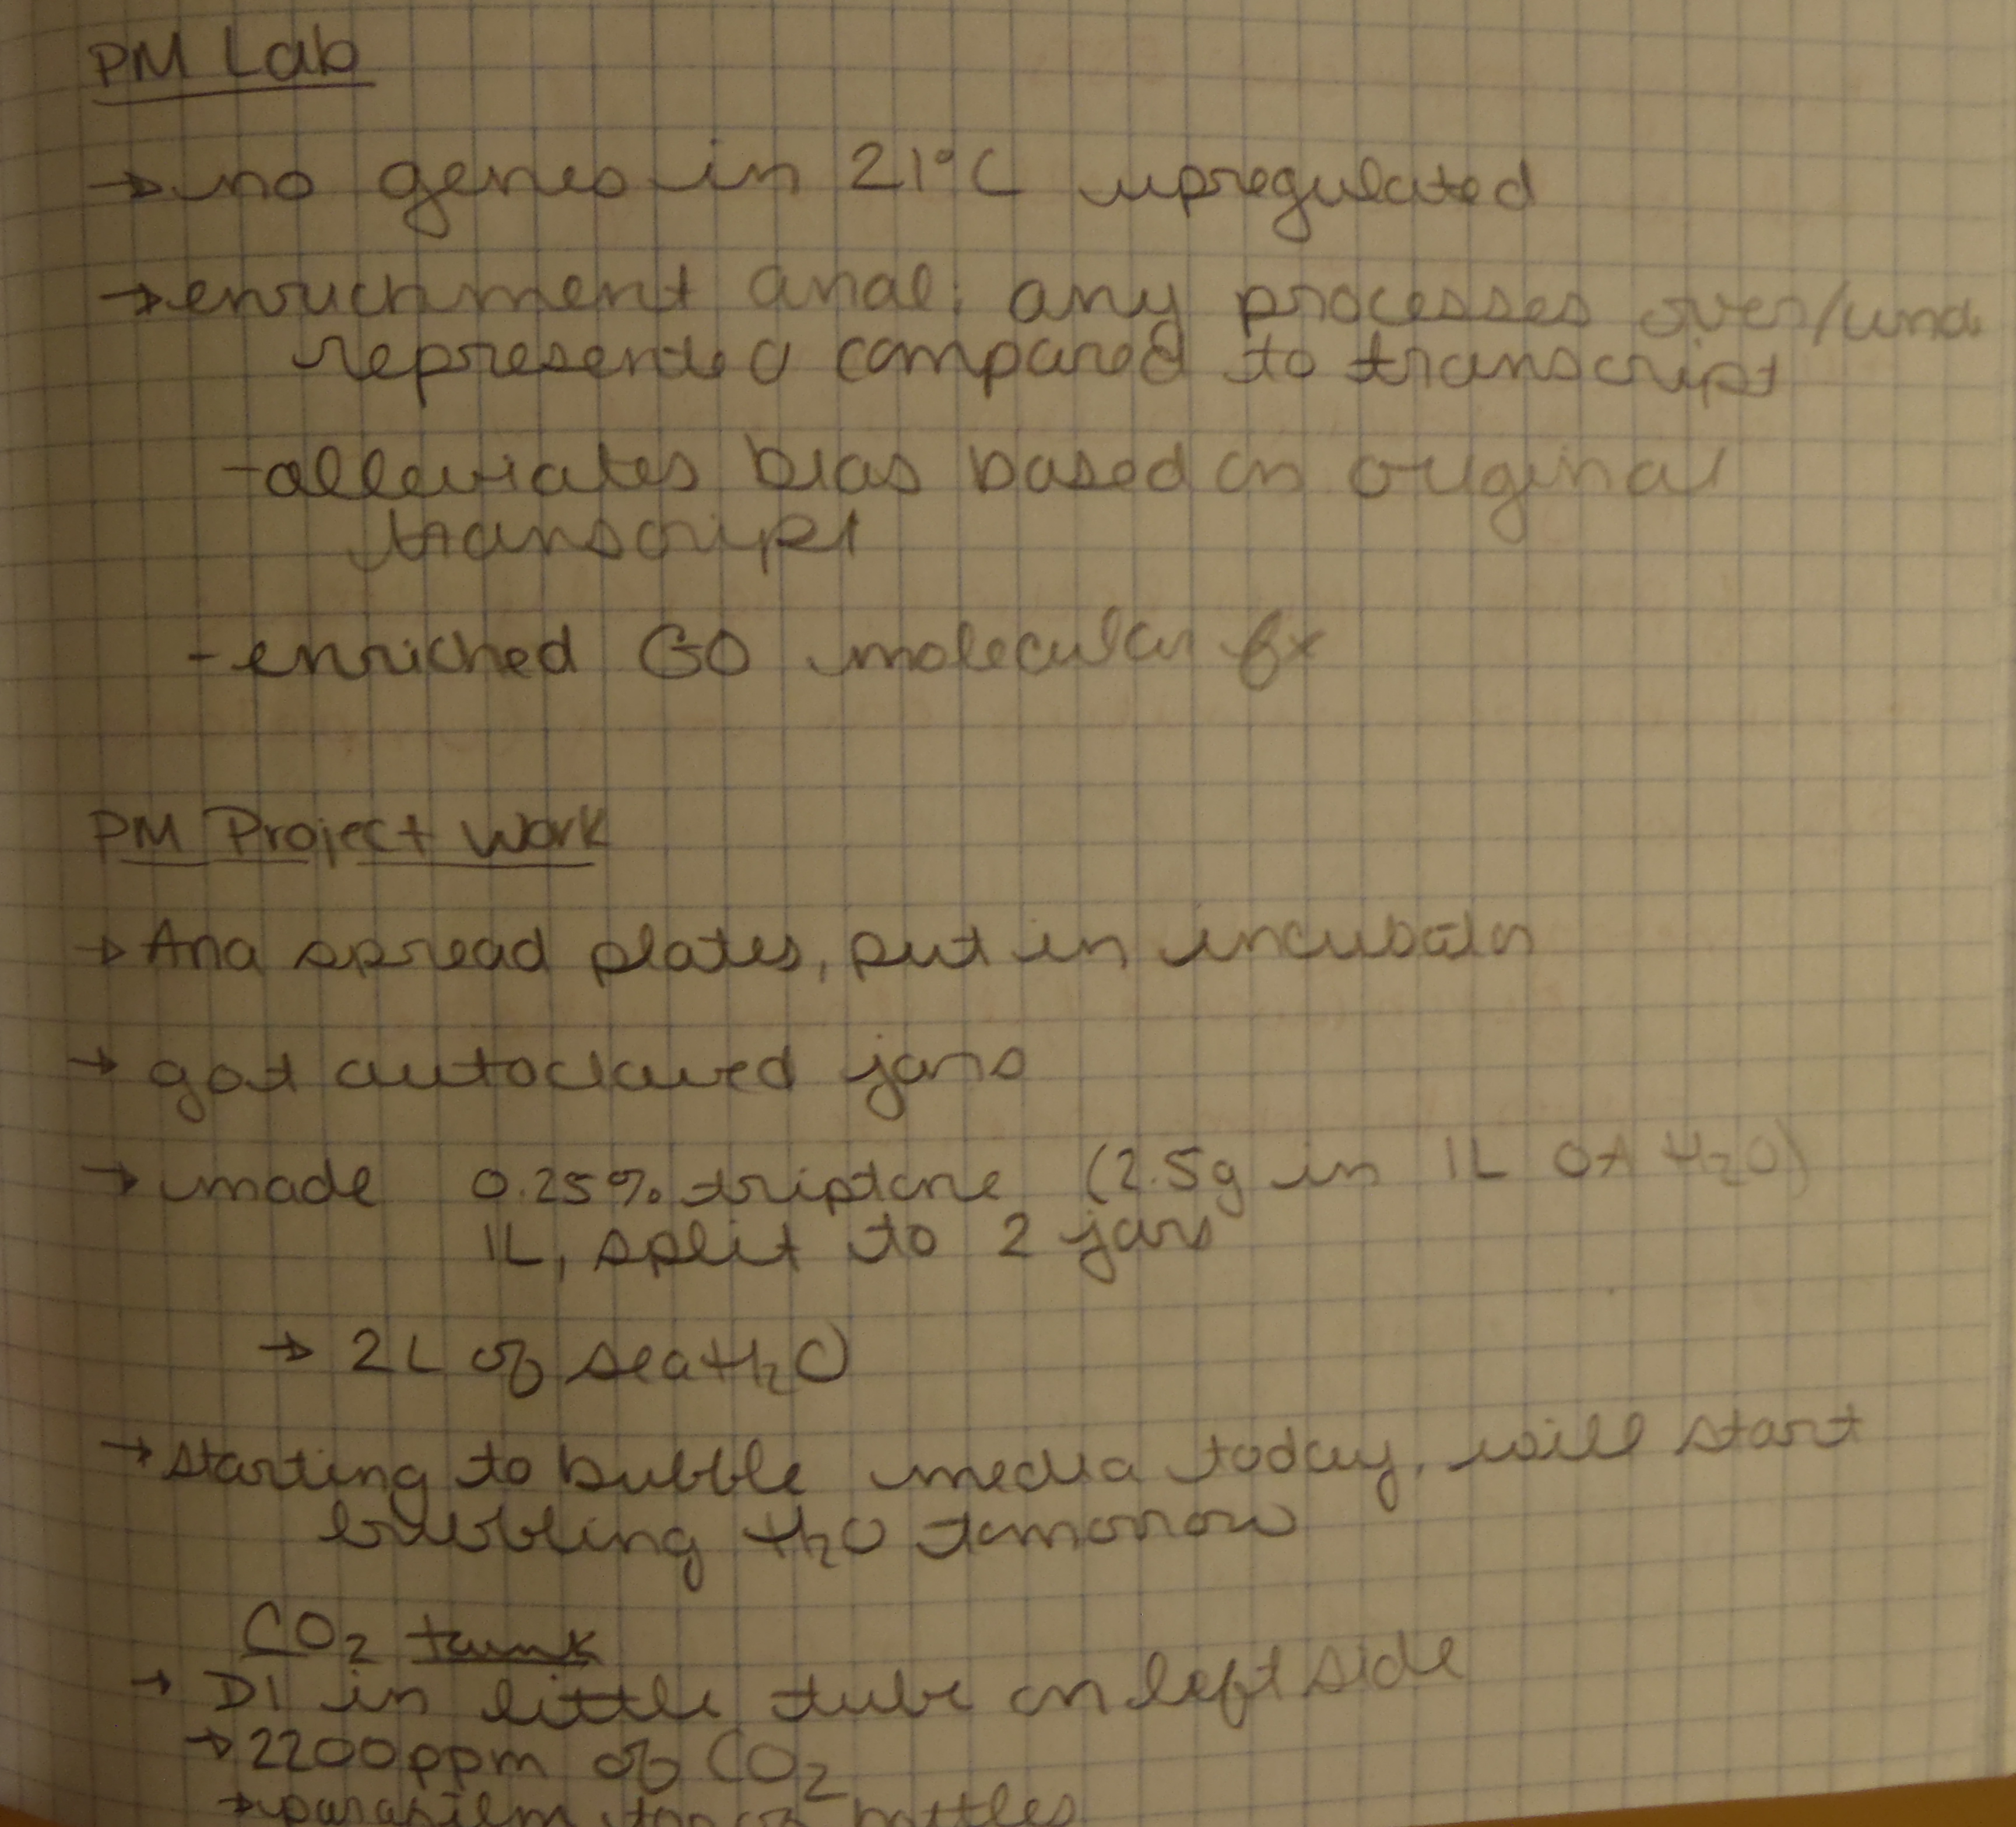 PM Lab
→ no genes in 21°C upregulated
→ enrichment anal: any processes over/und
represented compared to transcript
- alleviates bias based on original
transcript
- enriched GO molecular fx
PM Project Work
→ Ana spread plates, put in incubator
→ got autoclaved jars
→ made 0.25% triptone (2.5g in 1L OA H₂O)
1L, split to 2 jars
→ 2L of sea H₂O
→ starting to bubble media today, will start
bubbling H₂O tomorrow
CO₂ tank
→ DI in little tube on left side
→ 2200ppm of CO₂
→ parafilm top of bottles